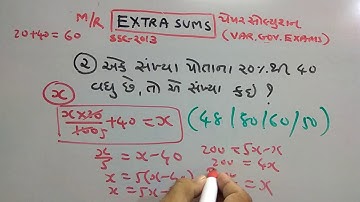 M/R EXTRA SUMS પેપર સોલ્યુશન
20+40=60 SSC-2013 (VAR. GOV. EXAMS)
② એક સંખ્યા પોતાના 20% થી 40
વધુ છે, તો એ સંખ્યા કઇ ?
ⓧ
x × 20 / 100 5 + 40 = x (48 / 80 / 60 / 50)
x/5 = x-40 200 = 5x-x
x = 5(x-40) 200 = 4x
x = 5x- = x